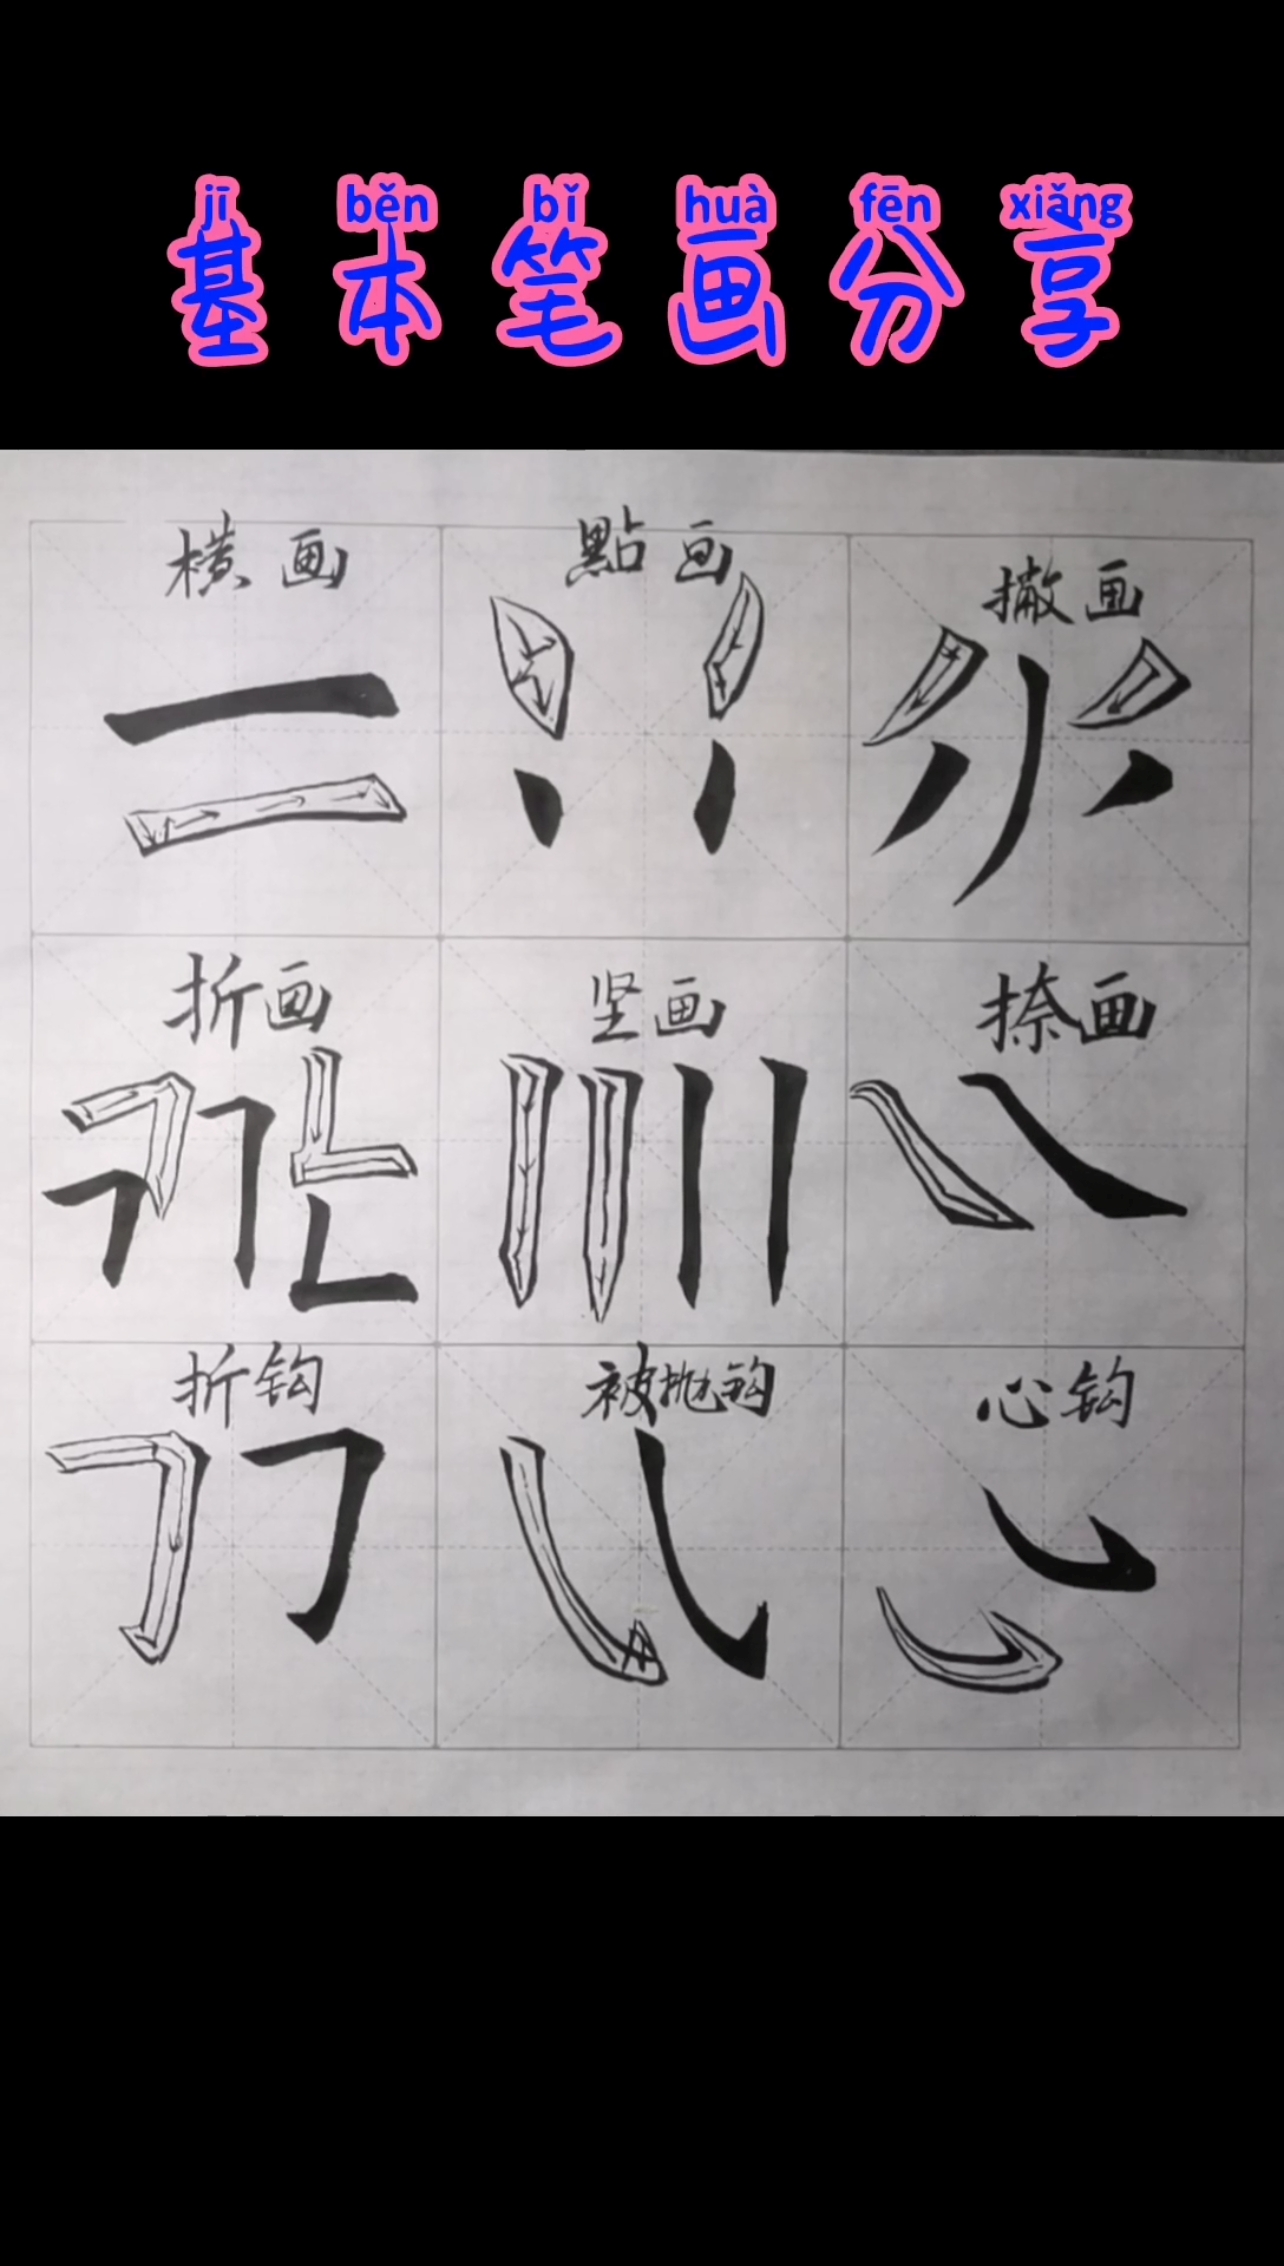 jī běn bǐ huà fēn xiǎng
基本笔画分享
横画 點画 撇画
折画 坚画 捺画
折钩 被抛钩 心钩